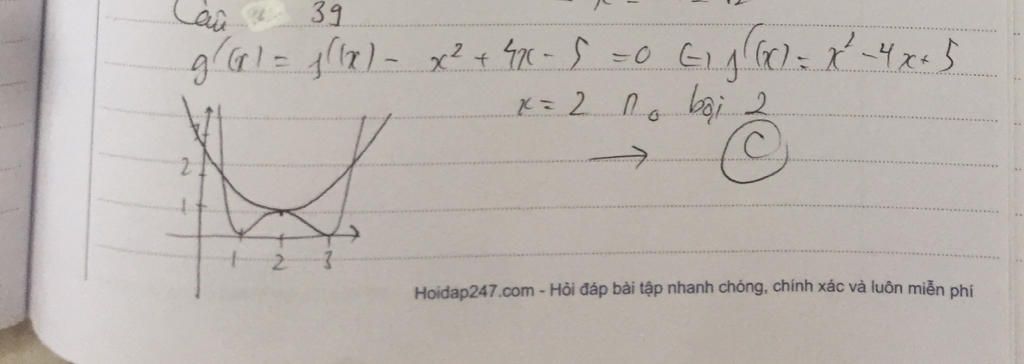 Câu 39
g'(x) = f'(x) - x² + 4x - 5 = 0 (=) f'(x) = x² - 4x + 5
x = 2 n₀ bội 2
→ C
2
1
1 2 3
Hoidap247.com - Hỏi đáp bài tập nhanh chóng, chính xác và luôn miễn phí